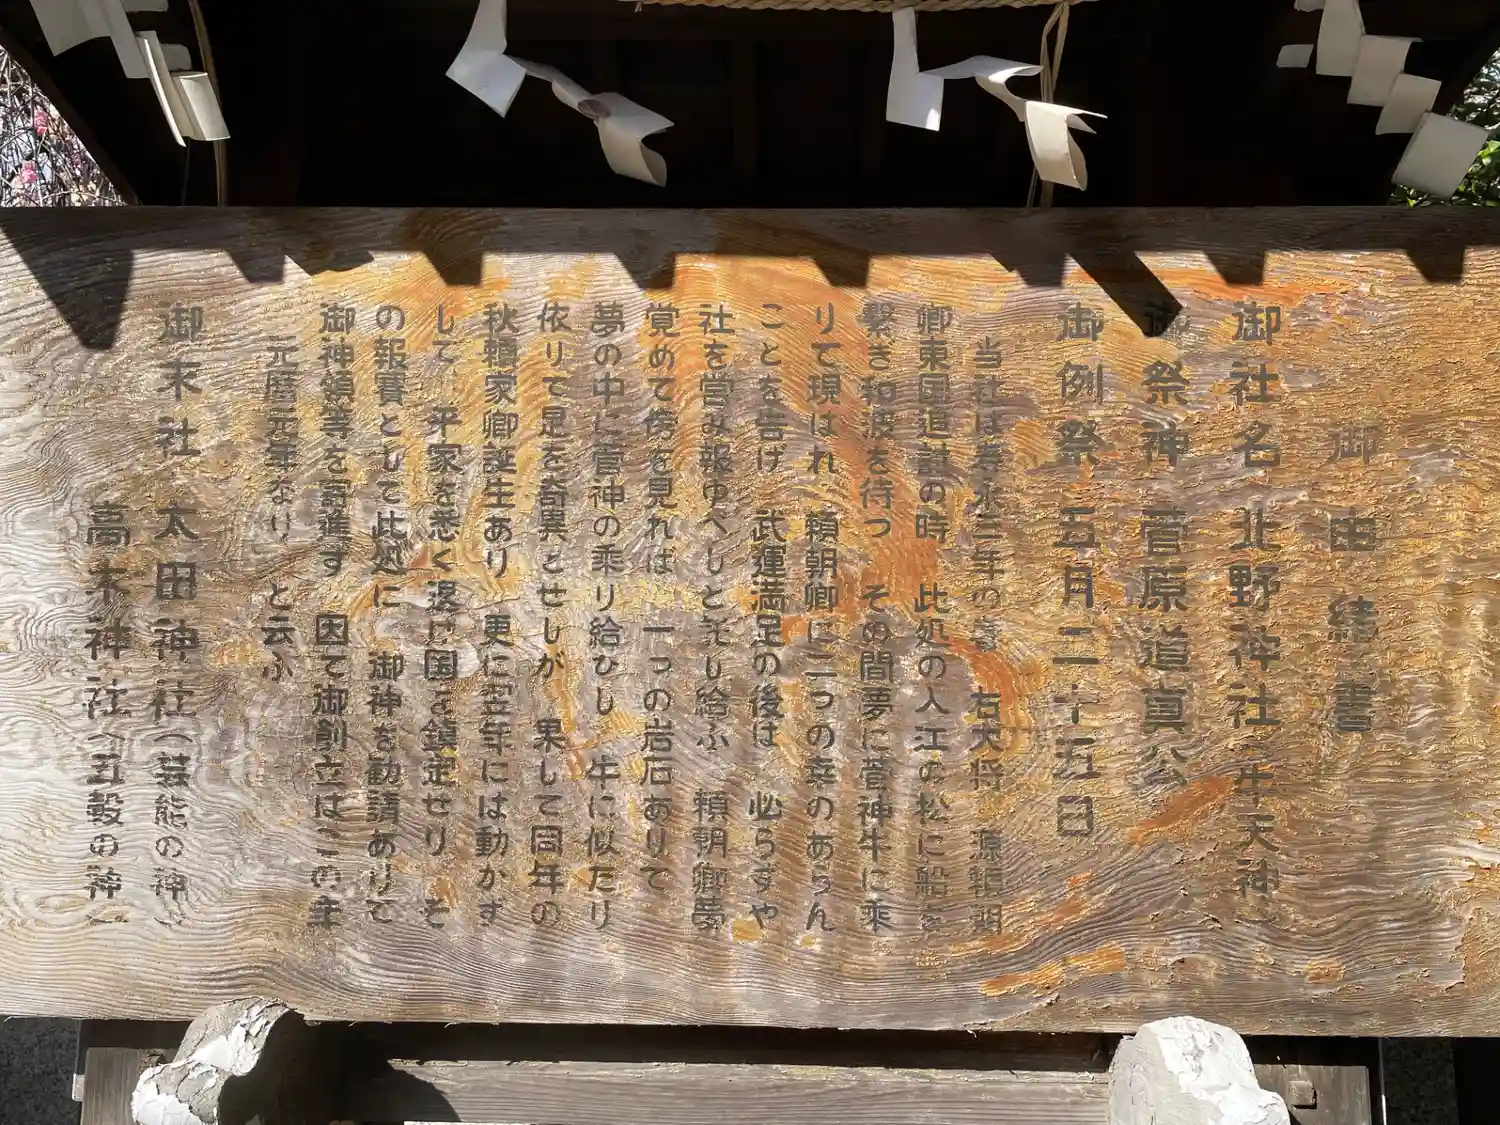 御由緒書
御社名 北野神社(牛天神)
御祭神 菅原道真公
御例祭 五月二十五日
当社は寿永三年の春 右大将 源頼朝
卿東国追討の時 此処の入江の松に船を
繋き和波を待つ その間夢に菅神牛に乗
りて現はれ 頼朝卿に二つの幸のあらん
ことを告げ 武運満足の後は 必らずや
社を営み報ゆへしと託し給ふ 頼朝卿夢
覚めて傍を見れば 一つの岩石ありて
夢の中に菅神の乗り給ひし 牛に似たり
依りて是を奇異とせしが 果して同年の
秋頼家卿誕生あり 更に翌年には動かず
して 平家を悉く退け国を鎮定せり そ
の報賽として此処に 御神を勧請ありて
御神領等を寄進す 因て御創立はこの主
元暦元年なり と云ふ
御末社 太田神社(芸能の神)
高木神社(五穀の神)